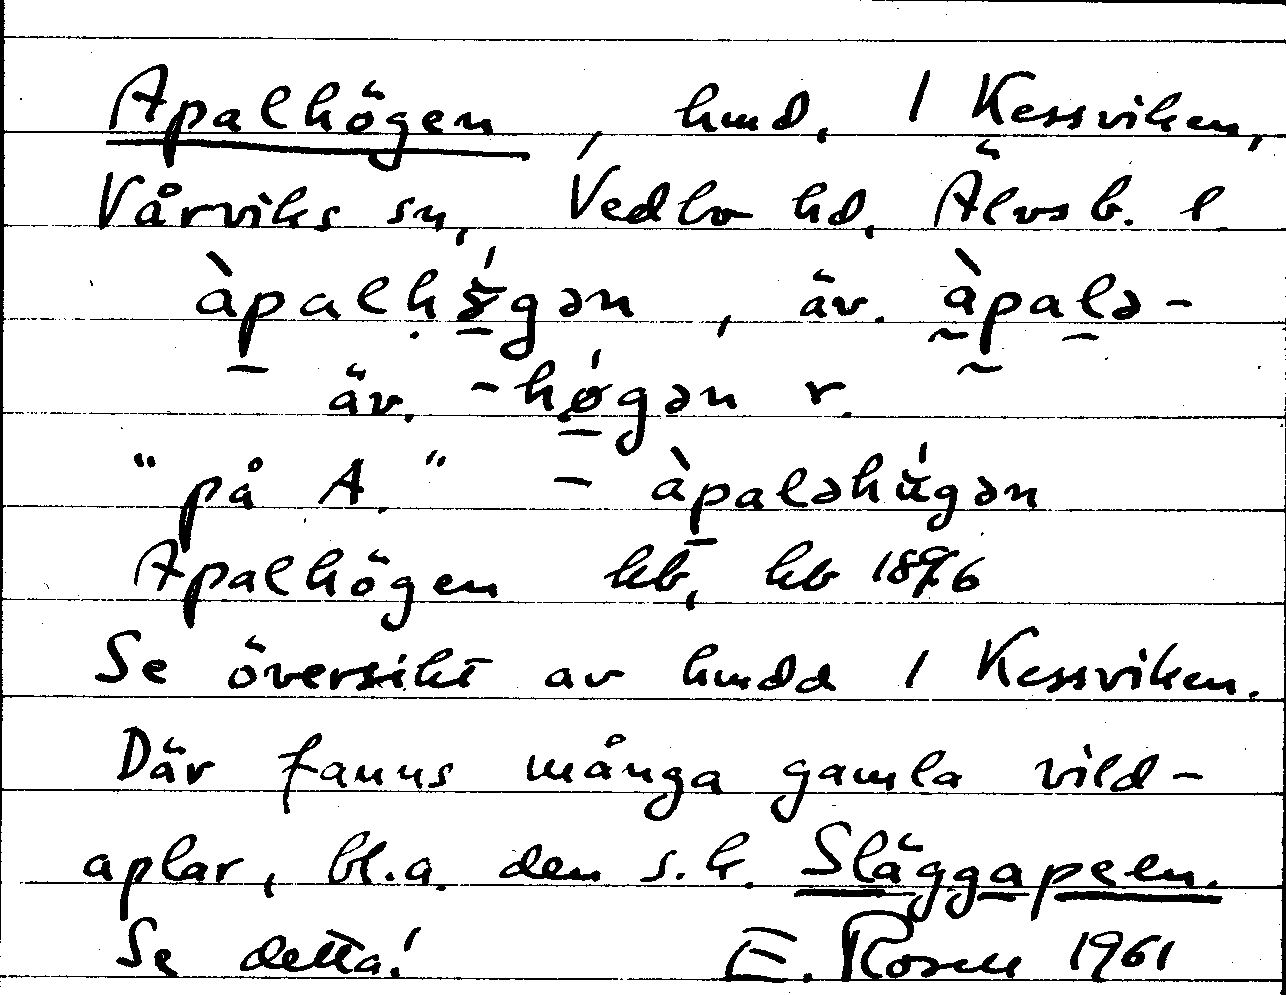 Apalhögen, hmd. i Kessviken,
Vårviks sn, Vedbo hd, Älvsb. l
àpalhö́gən, äv. àpalə-
äv. -hǿgən r.
"på A." - àpaləhú̈gən
Apalhögen kb, kb 1896
Se översikt av hmdd i Kessviken.
Där fanns många gamla vild-
aplar, bl.a. den s.k. Släggapeln.
Se detta! E. Rosell 1961